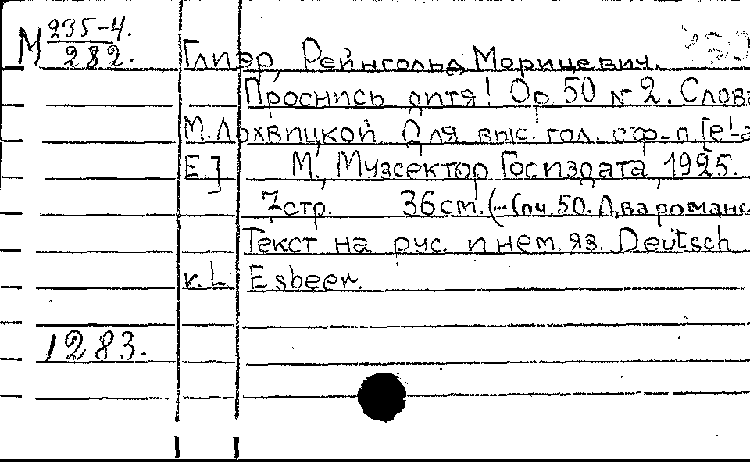 М 235-4.
282.
Глиэр, Рейнгольд Морицевич.
Проснись дитя! Op. 50 № 2. Слова
М. Лохвицкой. Для выс. гол. с ф-п [e¹-a
E] М., Музсектор Госиздата, 1925.
7 стр. 36 см. (Соч. 50. Два романс
Текст на рус. и нем. яз. Deutsch
v. L. Esbeer.
1283.